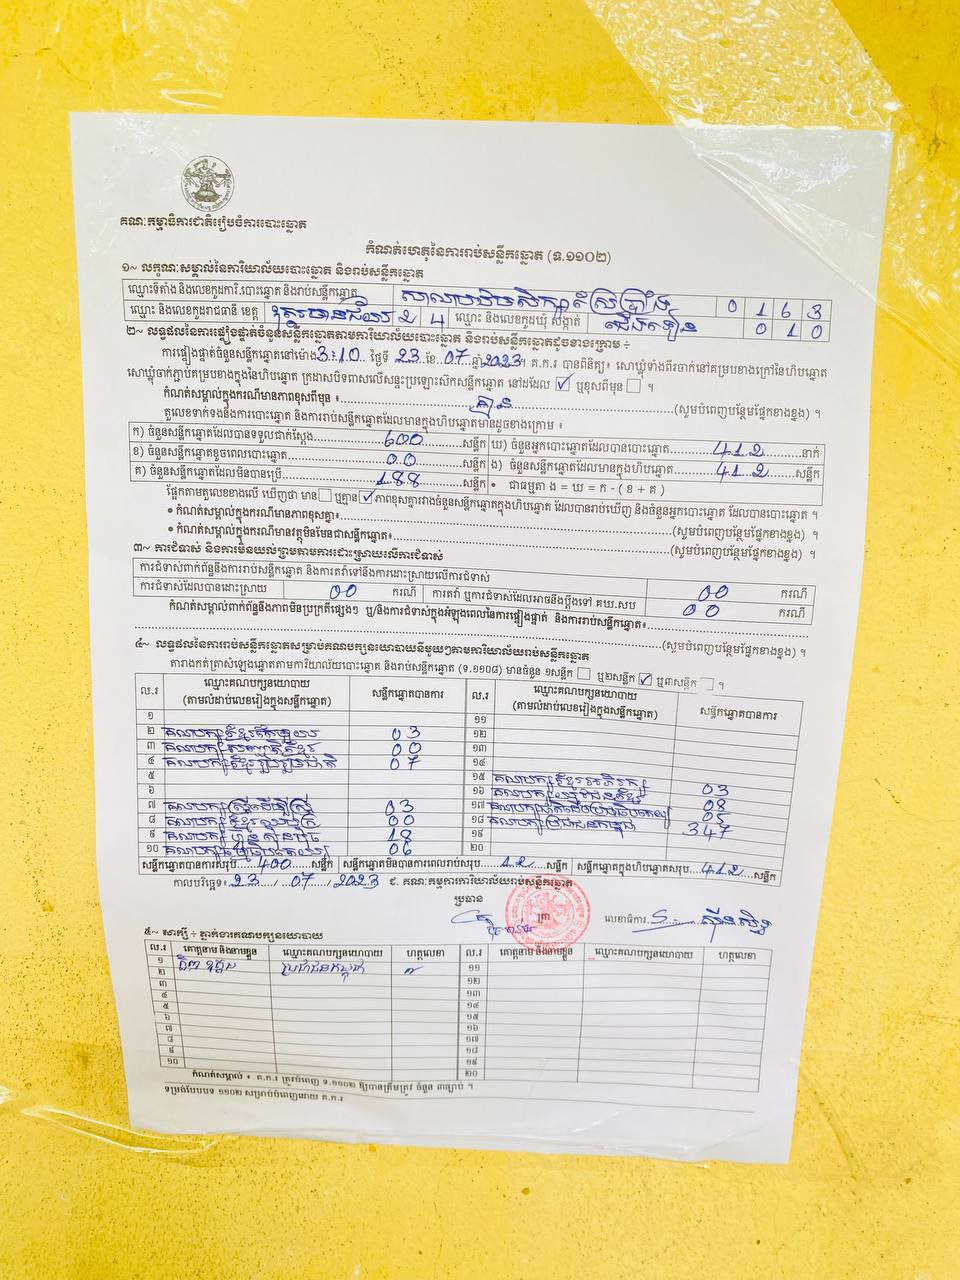 គណៈកម្មាធិការជាតិរៀបចំការបោះឆ្នោត
កំណត់ហេតុនៃការរាប់សន្លឹកឆ្នោត (ទ.១១០២)
១~ លក្ខណៈសម្គាល់នៃការិយាល័យបោះឆ្នោត និងរាប់សន្លឹកឆ្នោត
ឈ្មោះទីតាំង និងលេខកូដការិ.បោះឆ្នោត និងរាប់សន្លឹកឆ្នោត សាលាបឋមសិក្សា 0 1 6 3
ឈ្មោះ និងលេខកូដរាជធានី ខេត្ត ឧត្តរមានជ័យ 2 4 ឈ្មោះ និងលេខកូដឃុំ សង្កាត់ ជើងទៀន 0 1 0
២~ លទ្ធផលនៃការផ្ទៀងផ្ទាត់ចំនួនសន្លឹកឆ្នោតតាមការិយាល័យបោះឆ្នោត និងរាប់សន្លឹកឆ្នោតដូចខាងក្រោម ÷
ការផ្ទៀងផ្ទាត់ចំនួនសន្លឹកឆ្នោតនៅម៉ោង 3:10 ថ្ងៃទី 23 ខែ 07 ឆ្នាំ 2023 ។ គ.ក.រ បានពិនិត្យ៖ សោឃ្លុំទាំងពីរចាក់នៅគម្របខាងក្រៅនៃហិបឆ្នោត
សោឃ្លុំចាក់ភ្ជាប់គម្របខាងក្នុងនៃហិបឆ្នោត ក្រដាសបិទពាសលើសន្ទះប្រឡោះស៊កសន្លឹកឆ្នោត នៅដដែល ☑ ឬខុសពីមុន ☐ ។
កំណត់សម្គាល់ក្នុងករណីមានភាពខុសពីមុន ៖ គ្មាន (សូមបំពេញបន្ថែមផ្នែកខាងខ្នង) ។
តួលេខទាក់ទងនឹងការបោះឆ្នោត និងការរាប់សន្លឹកឆ្នោតដែលមានក្នុងហិបឆ្នោតមានដូចខាងក្រោម ៖
ក) ចំនួនសន្លឹកឆ្នោតដែលបានទទួលជាក់ស្តែង 600 សន្លឹក ឃ) ចំនួនអ្នកបោះឆ្នោតដែលបានបោះឆ្នោត 412 នាក់
ខ) ចំនួនសន្លឹកឆ្នោតខូចពេលបោះឆ្នោត 00 សន្លឹក ង) ចំនួនសន្លឹកឆ្នោតដែលមានក្នុងហិបឆ្នោត 412 សន្លឹក
គ) ចំនួនសន្លឹកឆ្នោតដែលមិនបានប្រើ 188 សន្លឹក • ជាធម្មតា ង = ឃ = ក - ( ខ + គ )
ផ្អែកតាមតួលេខខាងលើ ឃើញថា មាន ☐ ឬគ្មាន ☑ ភាពខុសគ្នារវាងចំនួនសន្លឹកឆ្នោតក្នុងហិបឆ្នោត ដែលបានរាប់ឃើញ និងចំនួនអ្នកបោះឆ្នោត ដែលបានបោះឆ្នោត ។
• កំណត់សម្គាល់ក្នុងករណីមានភាពខុសគ្នា៖ (សូមបំពេញបន្ថែមផ្នែកខាងខ្នង) ។
• កំណត់សម្គាល់ក្នុងករណីមានវត្ថុមិនមែនជាសន្លឹកឆ្នោត៖ (សូមបំពេញបន្ថែមផ្នែកខាងខ្នង) ។
៣~ ការជំទាស់ និងការមិនយល់ព្រមតាមការដោះស្រាយលើការជំទាស់
ការជំទាស់ពាក់ព័ន្ធនឹងការរាប់សន្លឹកឆ្នោត និងការតវ៉ាទៅនឹងការដោះស្រាយលើការជំទាស់ 00 ករណី
ការជំទាស់ដែលបានដោះស្រាយ 00 ករណី ការតវ៉ា ឬការជំទាស់ដែលអាចនឹងប្តឹងទៅ គឃ.សប 00 ករណី
កំណត់សម្គាល់ពាក់ព័ន្ធនឹងភាពមិនប្រក្រតីផ្សេងៗ ឬ/និងការជំទាស់ក្នុងអំឡុងពេលនៃការផ្ទៀងផ្ទាត់ និងការរាប់សន្លឹកឆ្នោត៖
(សូមបំពេញបន្ថែមផ្នែកខាងខ្នង) ។
៤~ លទ្ធផលនៃការរាប់សន្លឹកឆ្នោតសម្រាប់គណបក្សនយោបាយនីមួយៗតាមការិយាល័យរាប់សន្លឹកឆ្នោត
តារាងកត់ត្រាសំឡេងឆ្នោតតាមការិយាល័យបោះឆ្នោត និងរាប់សន្លឹកឆ្នោត (ទ.១១០៨) មានចំនួន ១សន្លឹក ☐ ឬ២សន្លឹក ☑ ឬ៣សន្លឹក ☐ ។
ល.រ ឈ្មោះគណបក្សនយោបាយ (តាមលំដាប់លេខរៀងក្នុងសន្លឹកឆ្នោត) សន្លឹកឆ្នោតបានការ ល.រ ឈ្មោះគណបក្សនយោបាយ (តាមលំដាប់លេខរៀងក្នុងសន្លឹកឆ្នោត) សន្លឹកឆ្នោតបានការ
១ ១១
២ 03 ១២
៣ គណបក្សសញ្ជាតិខ្មែរ 00 ១៣
៤ គណបក្សខ្មែររួបរួមជាតិ 07 ១៤
៥ ១៥ គណបក្សខ្មែរអភិរក្ស 03
៦ ១៦ 08
៧ គណបក្សស្ត្រីដើម្បីស្ត្រី 03 ១៧ 05
៨ 00 ១៨ គណបក្សប្រជាជនកម្ពុជា 347
៩ គណបក្សហ្វ៊ុនស៊ិនប៉ិច 18 ១៩
១០ 06 ២០
សន្លឹកឆ្នោតបានការសរុប 400 សន្លឹក សន្លឹកឆ្នោតមិនបានការពេលរាប់សរុប 12 សន្លឹក សន្លឹកឆ្នោតក្នុងហិបឆ្នោតសរុប 412 សន្លឹក
កាលបរិច្ឆេទ៖ 23 / 07 / 2023 ជ. គណៈកម្មការការិយាល័យរាប់សន្លឹកឆ្នោត
ប្រធាន
ត្រា លេខាធិការ
៥~ សាក្សី ÷ ភ្នាក់ងារគណបក្សនយោបាយ
ល.រ គោត្តនាម និងនាមខ្លួន ឈ្មោះគណបក្សនយោបាយ ហត្ថលេខា ល.រ គោត្តនាម និងនាមខ្លួន ឈ្មោះគណបក្សនយោបាយ ហត្ថលេខា
១ ប្រជាជនកម្ពុជា ១១
២ ១២
៣ ១៣
៤ ១៤
៥ ១៥
៦ ១៦
៧ ១៧
៨ ១៨
៩ ១៩
១០ ២០
កំណត់សម្គាល់ ៖ គ.ក.រ ត្រូវបំពេញ ទ.១១០២ ឱ្យបានត្រឹមត្រូវ ចំនួន ៣ច្បាប់ ។
ទម្រង់បែបបទ ១១០២ សម្រាប់បំពេញដោយ គ.ក.រ